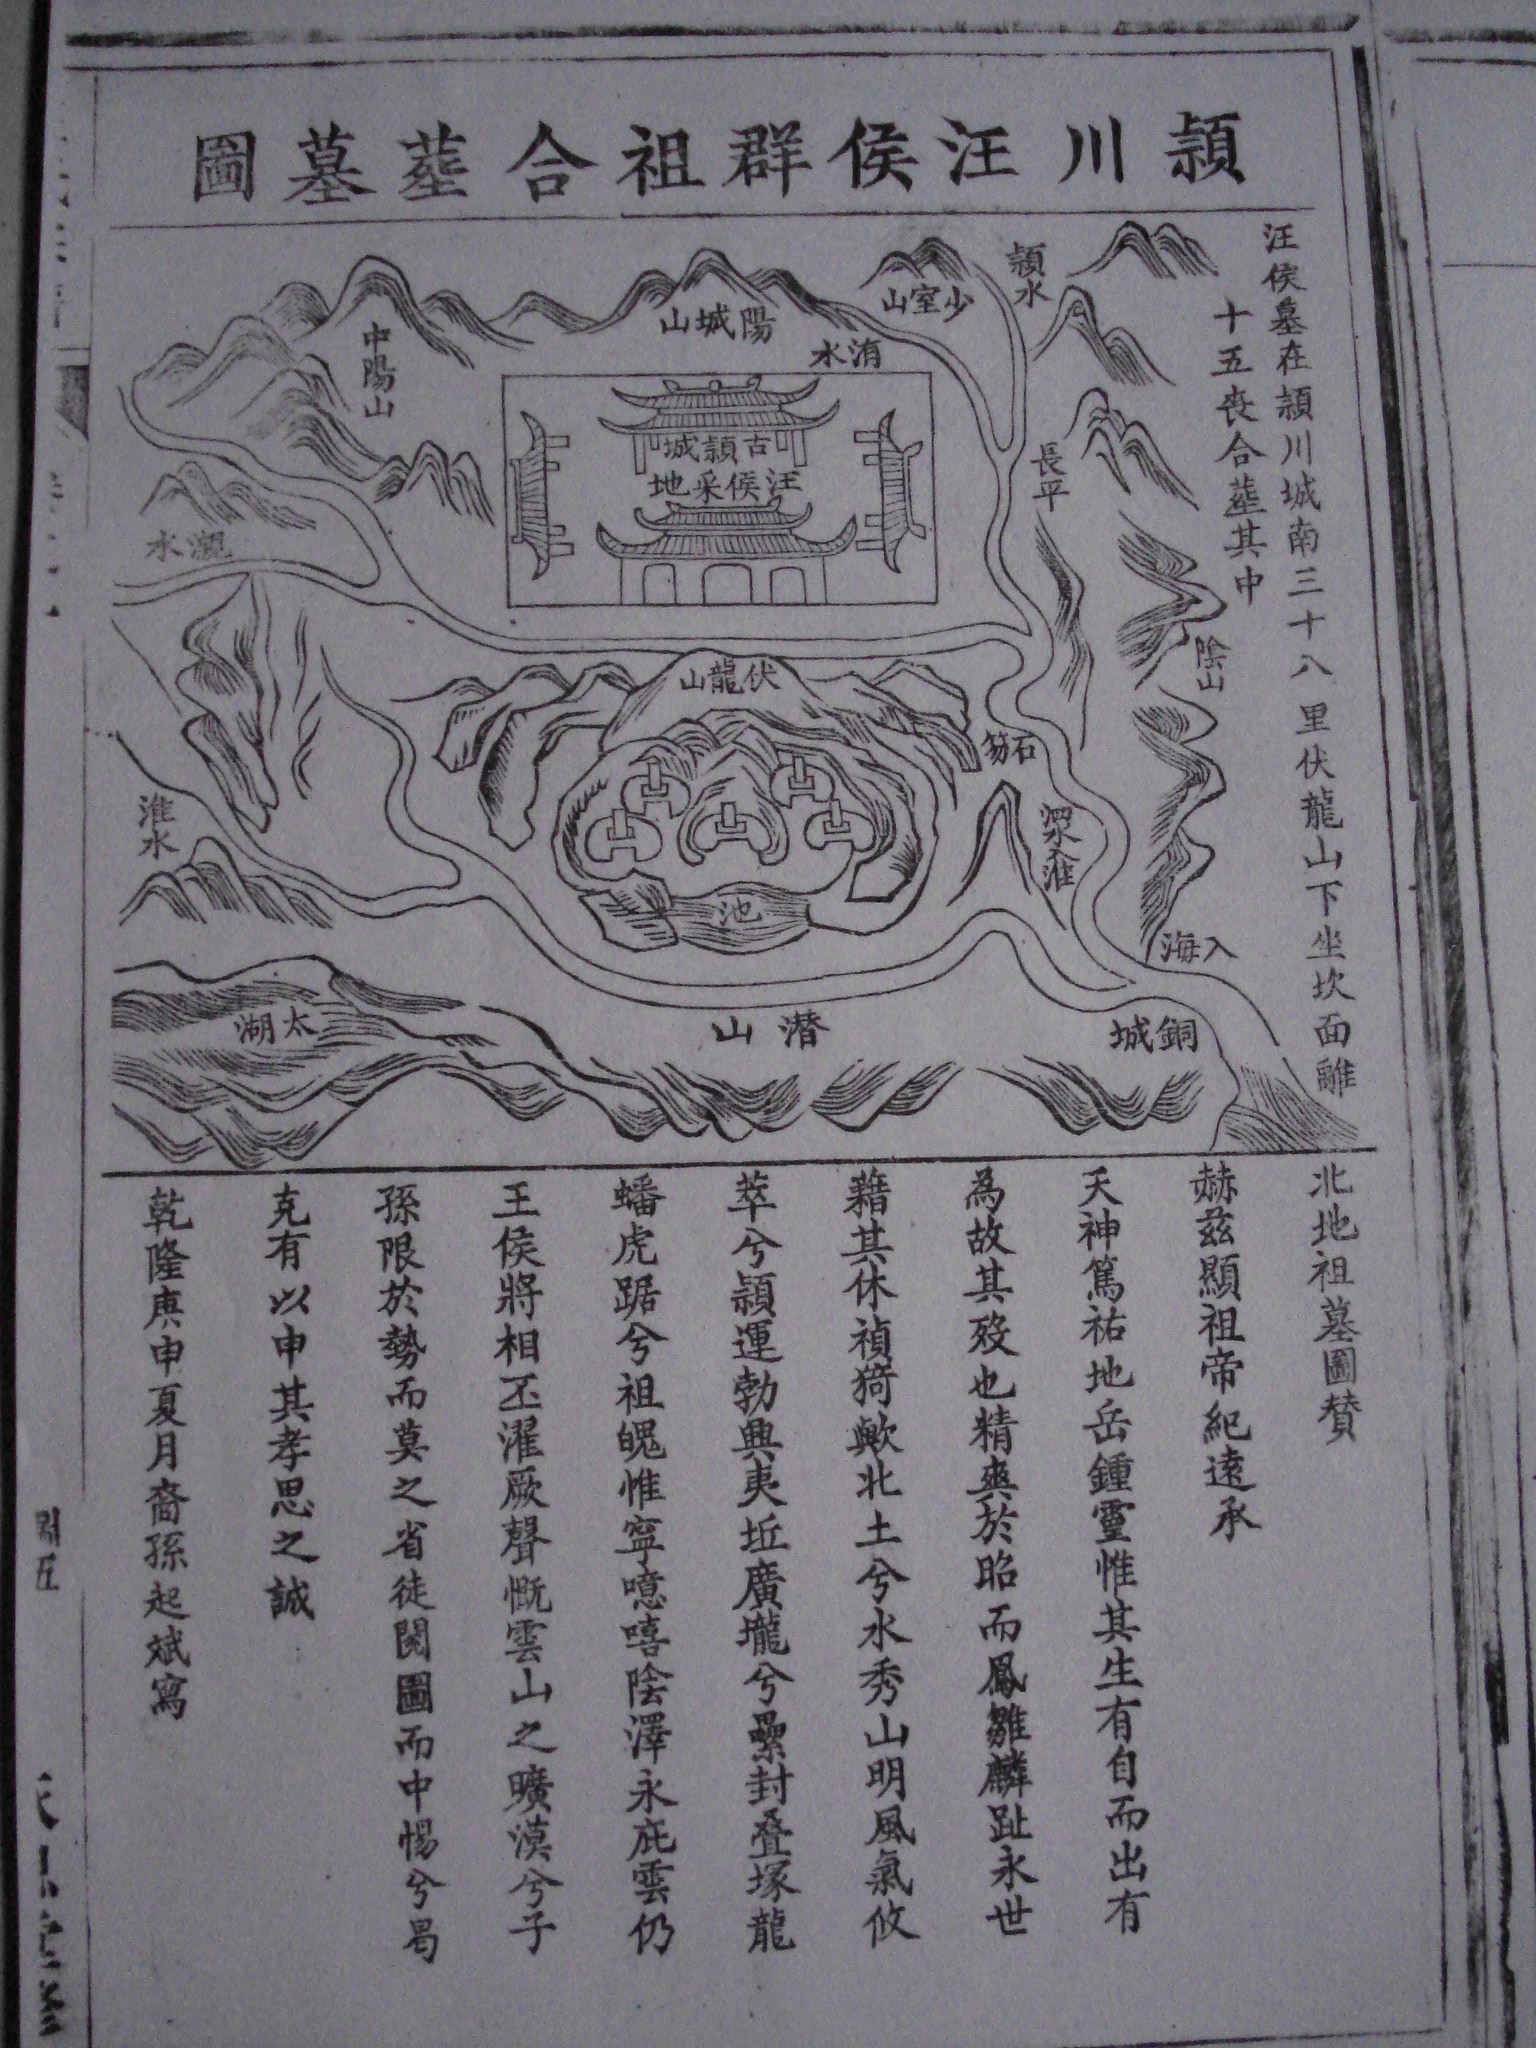 潁川汪侯群祖合塟墓圖
汪侯墓在潁川城南三十八里伏龍山下坐坎面離
十五喪合塟其中
潁水
少室山
陽城山
洧水
中陽山
古潁城
汪侯采地
長平
水
陰山
伏龍山
石笏
淮水
池
入海
太湖
潛山
銅城
北地祖墓圖贊
赫茲顯祖帝紀遠承
天神篤祐地岳鍾靈惟其生有自而出有
為故其歿也精爽於昭而鳳雛麟趾永世
藉其休禎猗歟北土兮水秀山明風氣攸
萃兮潁運勃興夷坵廣壠兮纍封叠塚龍
蟠虎踞兮祖魄惟寧噫嘻陰澤永庇雲仍
王侯將相丕濯厥聲慨雲山之曠漠兮子
孫限於勢而莫之省徒閱圖而中惕兮曷
克有以申其孝思之誠
乾隆庚申夏月裔孫起斌寫